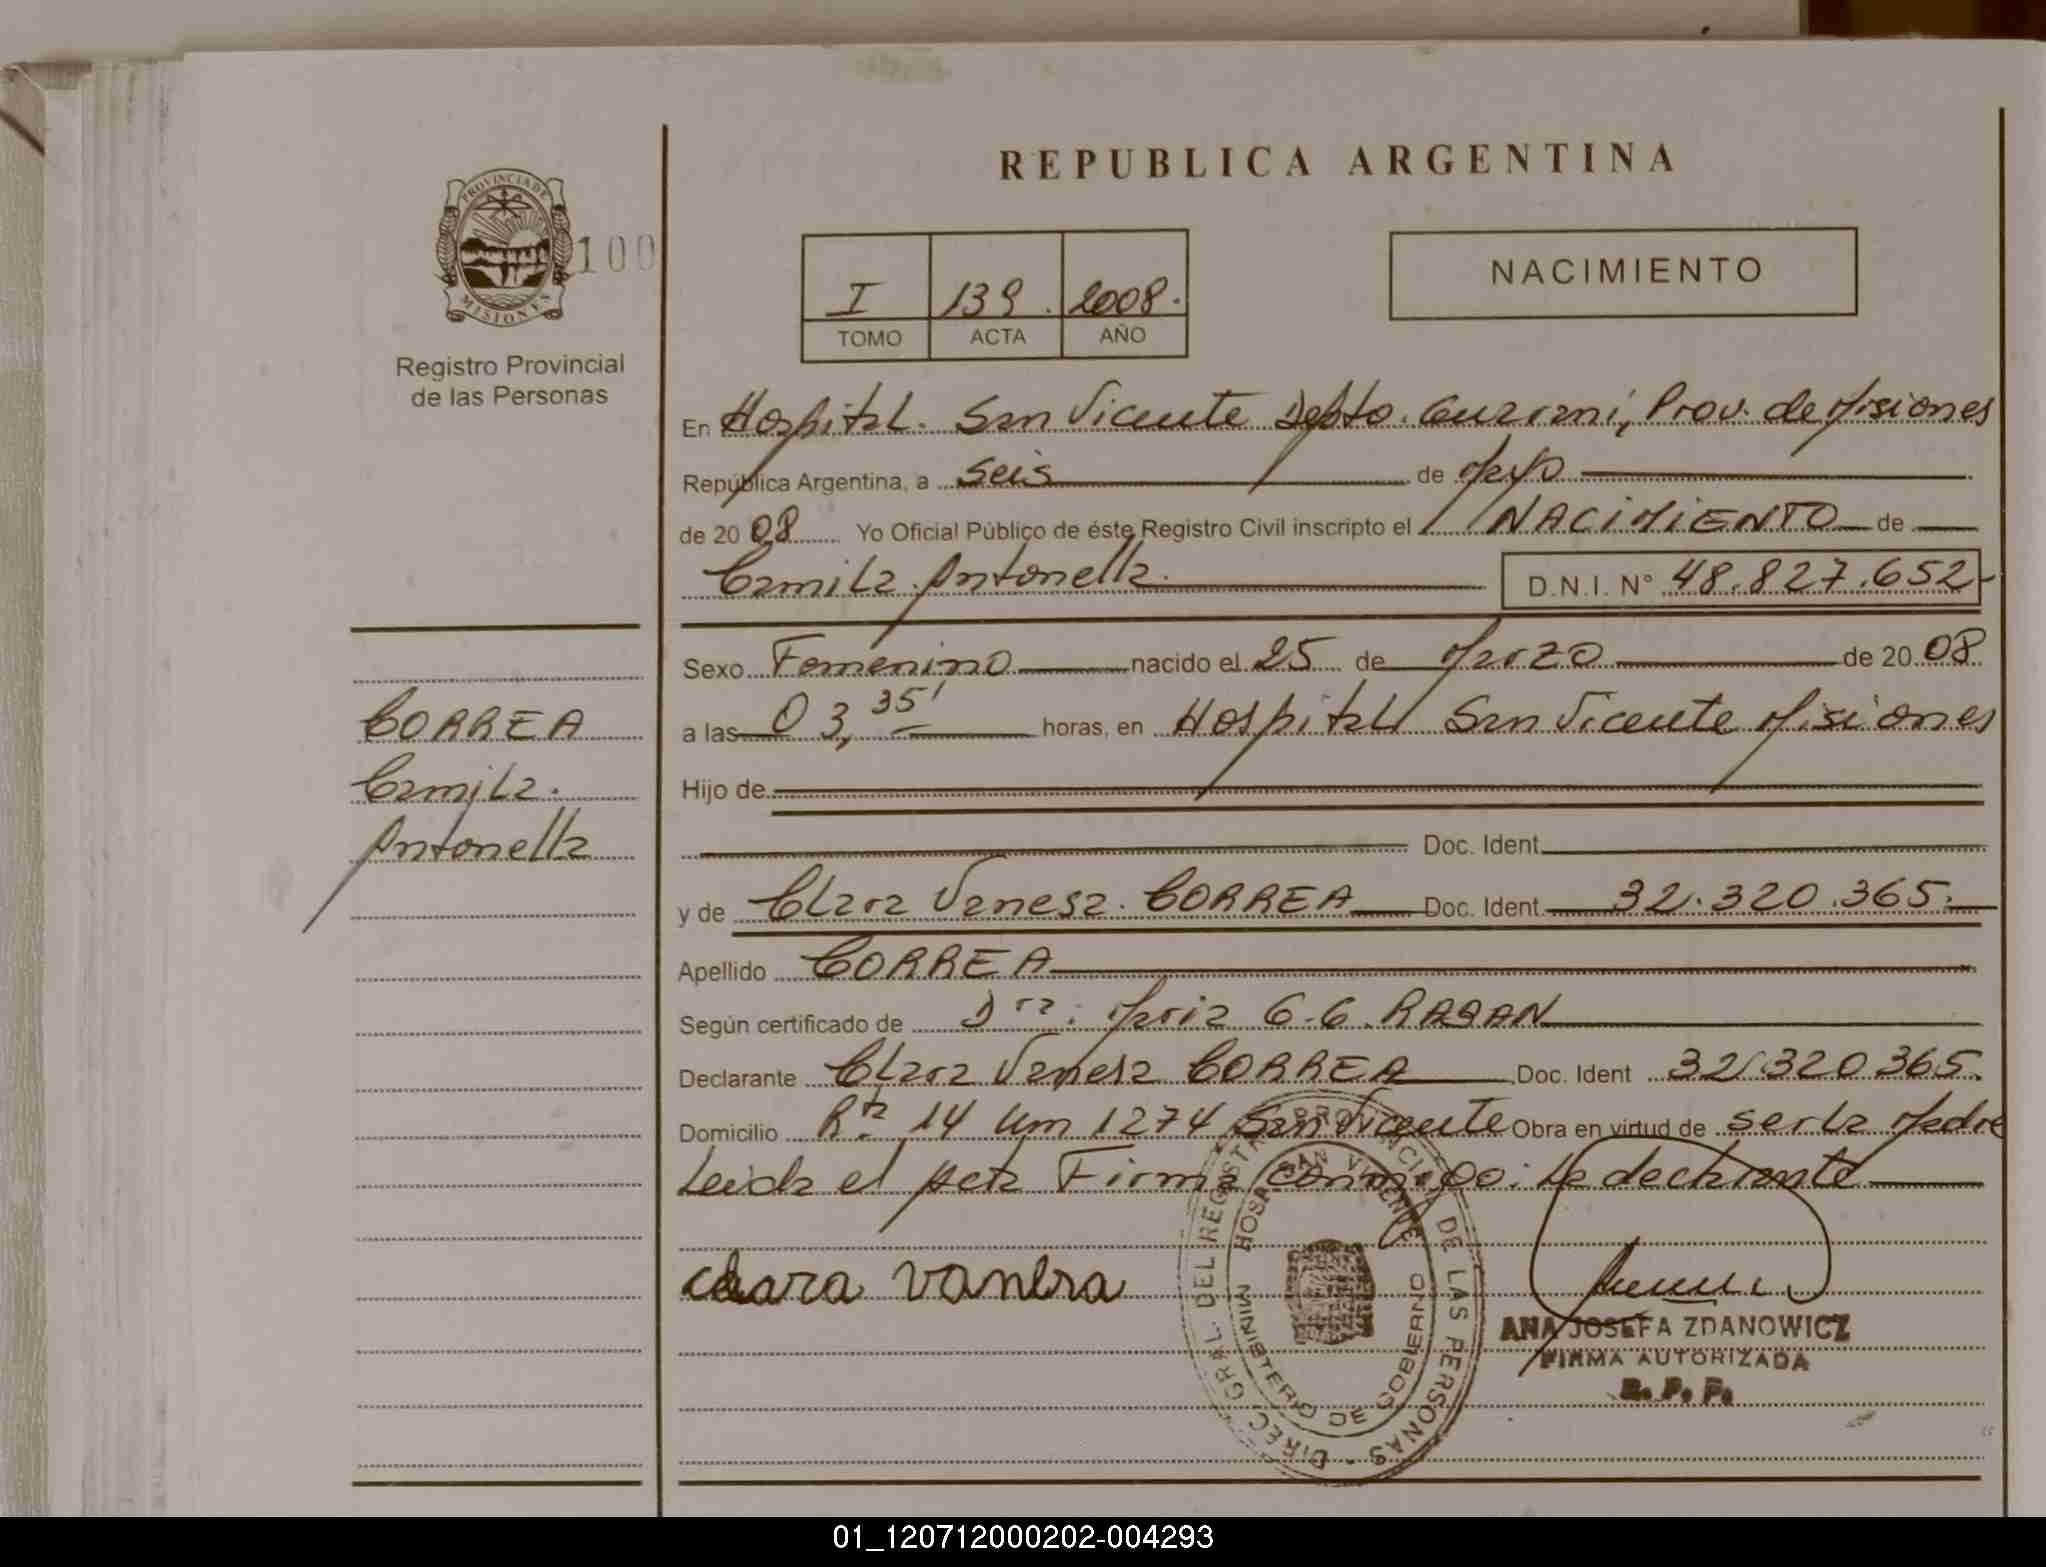 REPUBLICA ARGENTINA
PROVINCIA DE
MISIONES
100
Registro Provincial
de las Personas
I 139. 2008.
TOMO ACTA AÑO
NACIMIENTO
En Hospital. San Vicente Depto. Guarani, Prov. de Misiones
República Argentina, a seis de Mayo
de 20 08 Yo Oficial Público de éste Registro Civil inscripto el NACIMIENTO de
Camila. Antonella. D.N.I. N° 48.827.652-
Sexo Femenino nacido el 25 de Marzo de 20 08
a las 03,35' horas, en Hospital San Vicente Misiones
Hijo de
Doc. Ident.
y de Clara Vanesa. CORREA Doc. Ident. 32.320.365.
Apellido CORREA
Según certificado de Dra. Maria G.G.
Declarante Clara Vanesa CORREA Doc. Ident 32.320.365.
Domicilio Rta 14 Km 1274 San Vicente Obra en virtud de ser la Madre
Leida el acta Firma conmigo: La declarante
CORREA
Camila.
Antonella
Clara Vanesa
DIREC. GRAL. DEL REGISTRO PROVINCIAL DE LAS PERSONAS -
HOSP. SAN VICENTE
MINISTERIO DE GOBIERNO
ANA JOSEFA ZDANOWICZ
FIRMA AUTORIZADA
R. P. P.
01_120712000202-004293